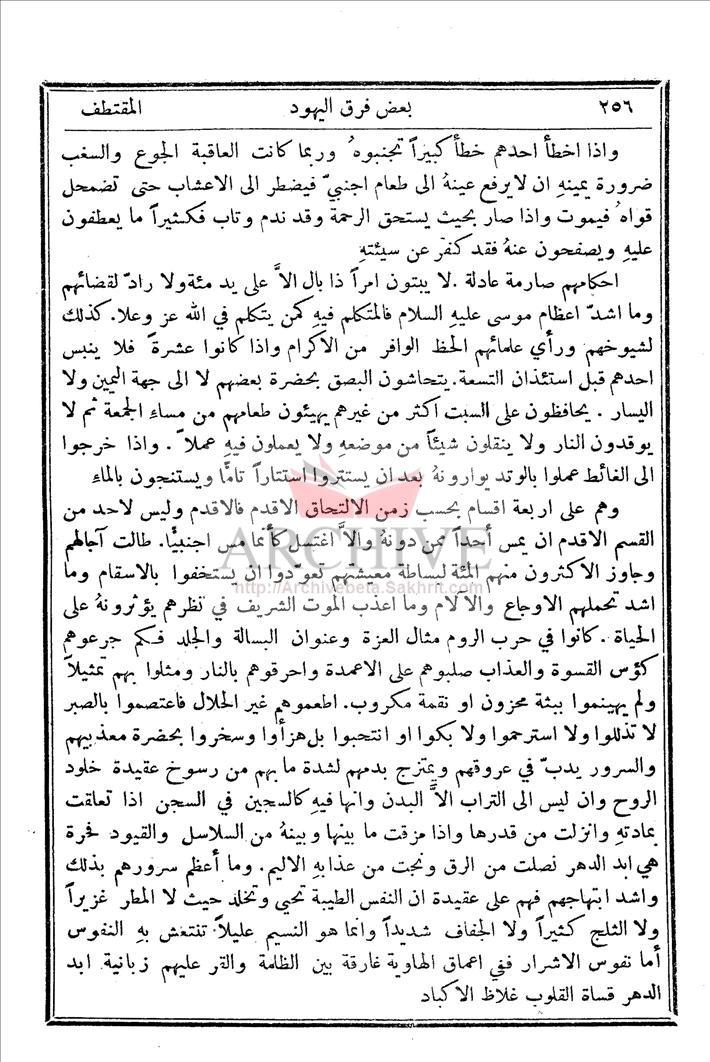 ٢٥٦ بعض فرق اليهود المقتطف
واذا اخطأ احدهم خطأً كبيراً تجنبوهُ وربما كانت العاقبة الجوع والسغب
ضرورة يمينهِ ان لا يرفع عينهُ الى طعام اجنبيّ فيضطر الى الاعشاب حتى تضمحل
قواهُ فيموت واذا صار بحيث يستحق الرحمة وقد ندم وتاب فكثيراً ما يعطفون
عليهِ ويصفحون عنهُ فقد كفر عن سيئتهِ
احكامهم صارمة عادلة . لا يبتون امراً ذا بال الاَّ على يد مئة ولا رادّ لقضائهم
وما اشدّ اعظام موسى عليهِ السلام فالمتكلم فيهِ كمن يتكلم في الله عز وعلا. كذلك
لشيوخهم ورأي علمائهم الحظ الوافر من الاكرام واذا كانوا عشرة فلا ينبس
احدهم قبل استئذان التسعة. يتحاشون البصق بحضرة بعضهم لا الى جهة اليمين ولا
اليسار . يحافظون على السبت اكثر من غيرهم يهيئون طعامهم من مساءِ الجمعة ثم لا
يوقدون النار ولا ينقلون شيئاً من موضعهِ ولا يعملون فيهِ عملاً . واذا خرجوا
الى الغائط عملوا بالوتد يوارونهُ بعد ان يستتروا استتاراً تامًّا ويستنجون بالماءِ
وهم على اربعة اقسام بحسب زمن الالتحاق الاقدم فالاقدم وليس لاحد من
القسم الاقدم ان يمس أحداً ممن دونهُ والاَّ اغتسل كأنما مس اجنبيًّا. طالت آجالهم
وجاوز الاكثرون منهم المئة لبساطة معيشتهم تعودوا ان يستخفوا بالاسقام وما
اشد تحملهم الاوجاع والآلام وما اعذب الموت الشريف في نظرهم يؤثرونهُ على
الحياة . كانوا في حرب الروم مثال العزة وعنوان البسالة والجلد فكم جرعوهم
كؤس القسوة والعذاب صلبوهم على الاعمدة واحرقوهم بالنار ومثلوا بهم تمثيلاً
ولم يهينموا ببثة محزون او نقمة مكروب. اطعموهم غير الحلال فاعتصموا بالصبر
لا تذللوا ولا استرحموا ولا بكوا او انتحبوا بل هزأوا وسخروا بحضرة معذبيهم
والسرور يدبّ في عروقهم ويمتزج بدمهم لشدة ما بهم من رسوخ عقيدة خلود
الروح وان ليس الى التراب الاَّ البدن وانها فيهِ كالسجين في السجن اذا تعلقت
بمادتهِ وانزلت من قدرها واذا مزقت ما بينها وبينهُ من السلاسل والقيود فخرة
هي ابد الدهر نصلت من الرق ونجت من عذابهِ الاليم. وما أعظم سرورهم بذلك
واشد ابتهاجهم فهم على عقيدة ان النفس الطيبة تحيي وتخلد حيث لا المطر غزيراً
ولا الثلج كثيراً ولا الجفاف شديداً وانما هو النسيم عليلاً تنتعش بهِ النفوس
أما نفوس الاشرار ففي اعماق الهاوية غارقة بين الظلمة والقر عليهم زبانية ابد
الدهر قساة القلوب غلاظ الاكباد
ARCHIVE
http://Archivebeta.Sakhrit.com